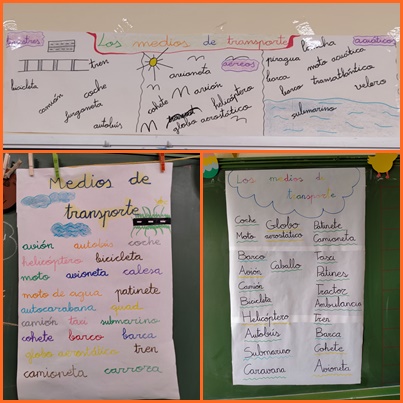 terrestres
Los medios de transporte
acuáticos
tren
bicicleta
coche
camión
furgoneta
autobús
avioneta
aéreos
avión
cohete
helicóptero
globo aerostático
lancha
piragua
moto acuática
barca
transatlántico
barco
velero
submarino
Medios de
transporte
avión autobús coche
helicóptero bicicleta
moto avioneta calesa
moto de agua patinete
autocarabana quad
camión taxi submarino
cohete barco barca
globo aerostático tren
camioneta carroza
Los medios de
transporte
Coche Globo Patinete
Moto aerostático Camioneta
Barco Taxi
Avión Caballo Patines
Camión Tractor
Bicicleta Ambulancia
Helicóptero Tren
Autobús Barca
Submarino Cohete
Caravana Avioneta